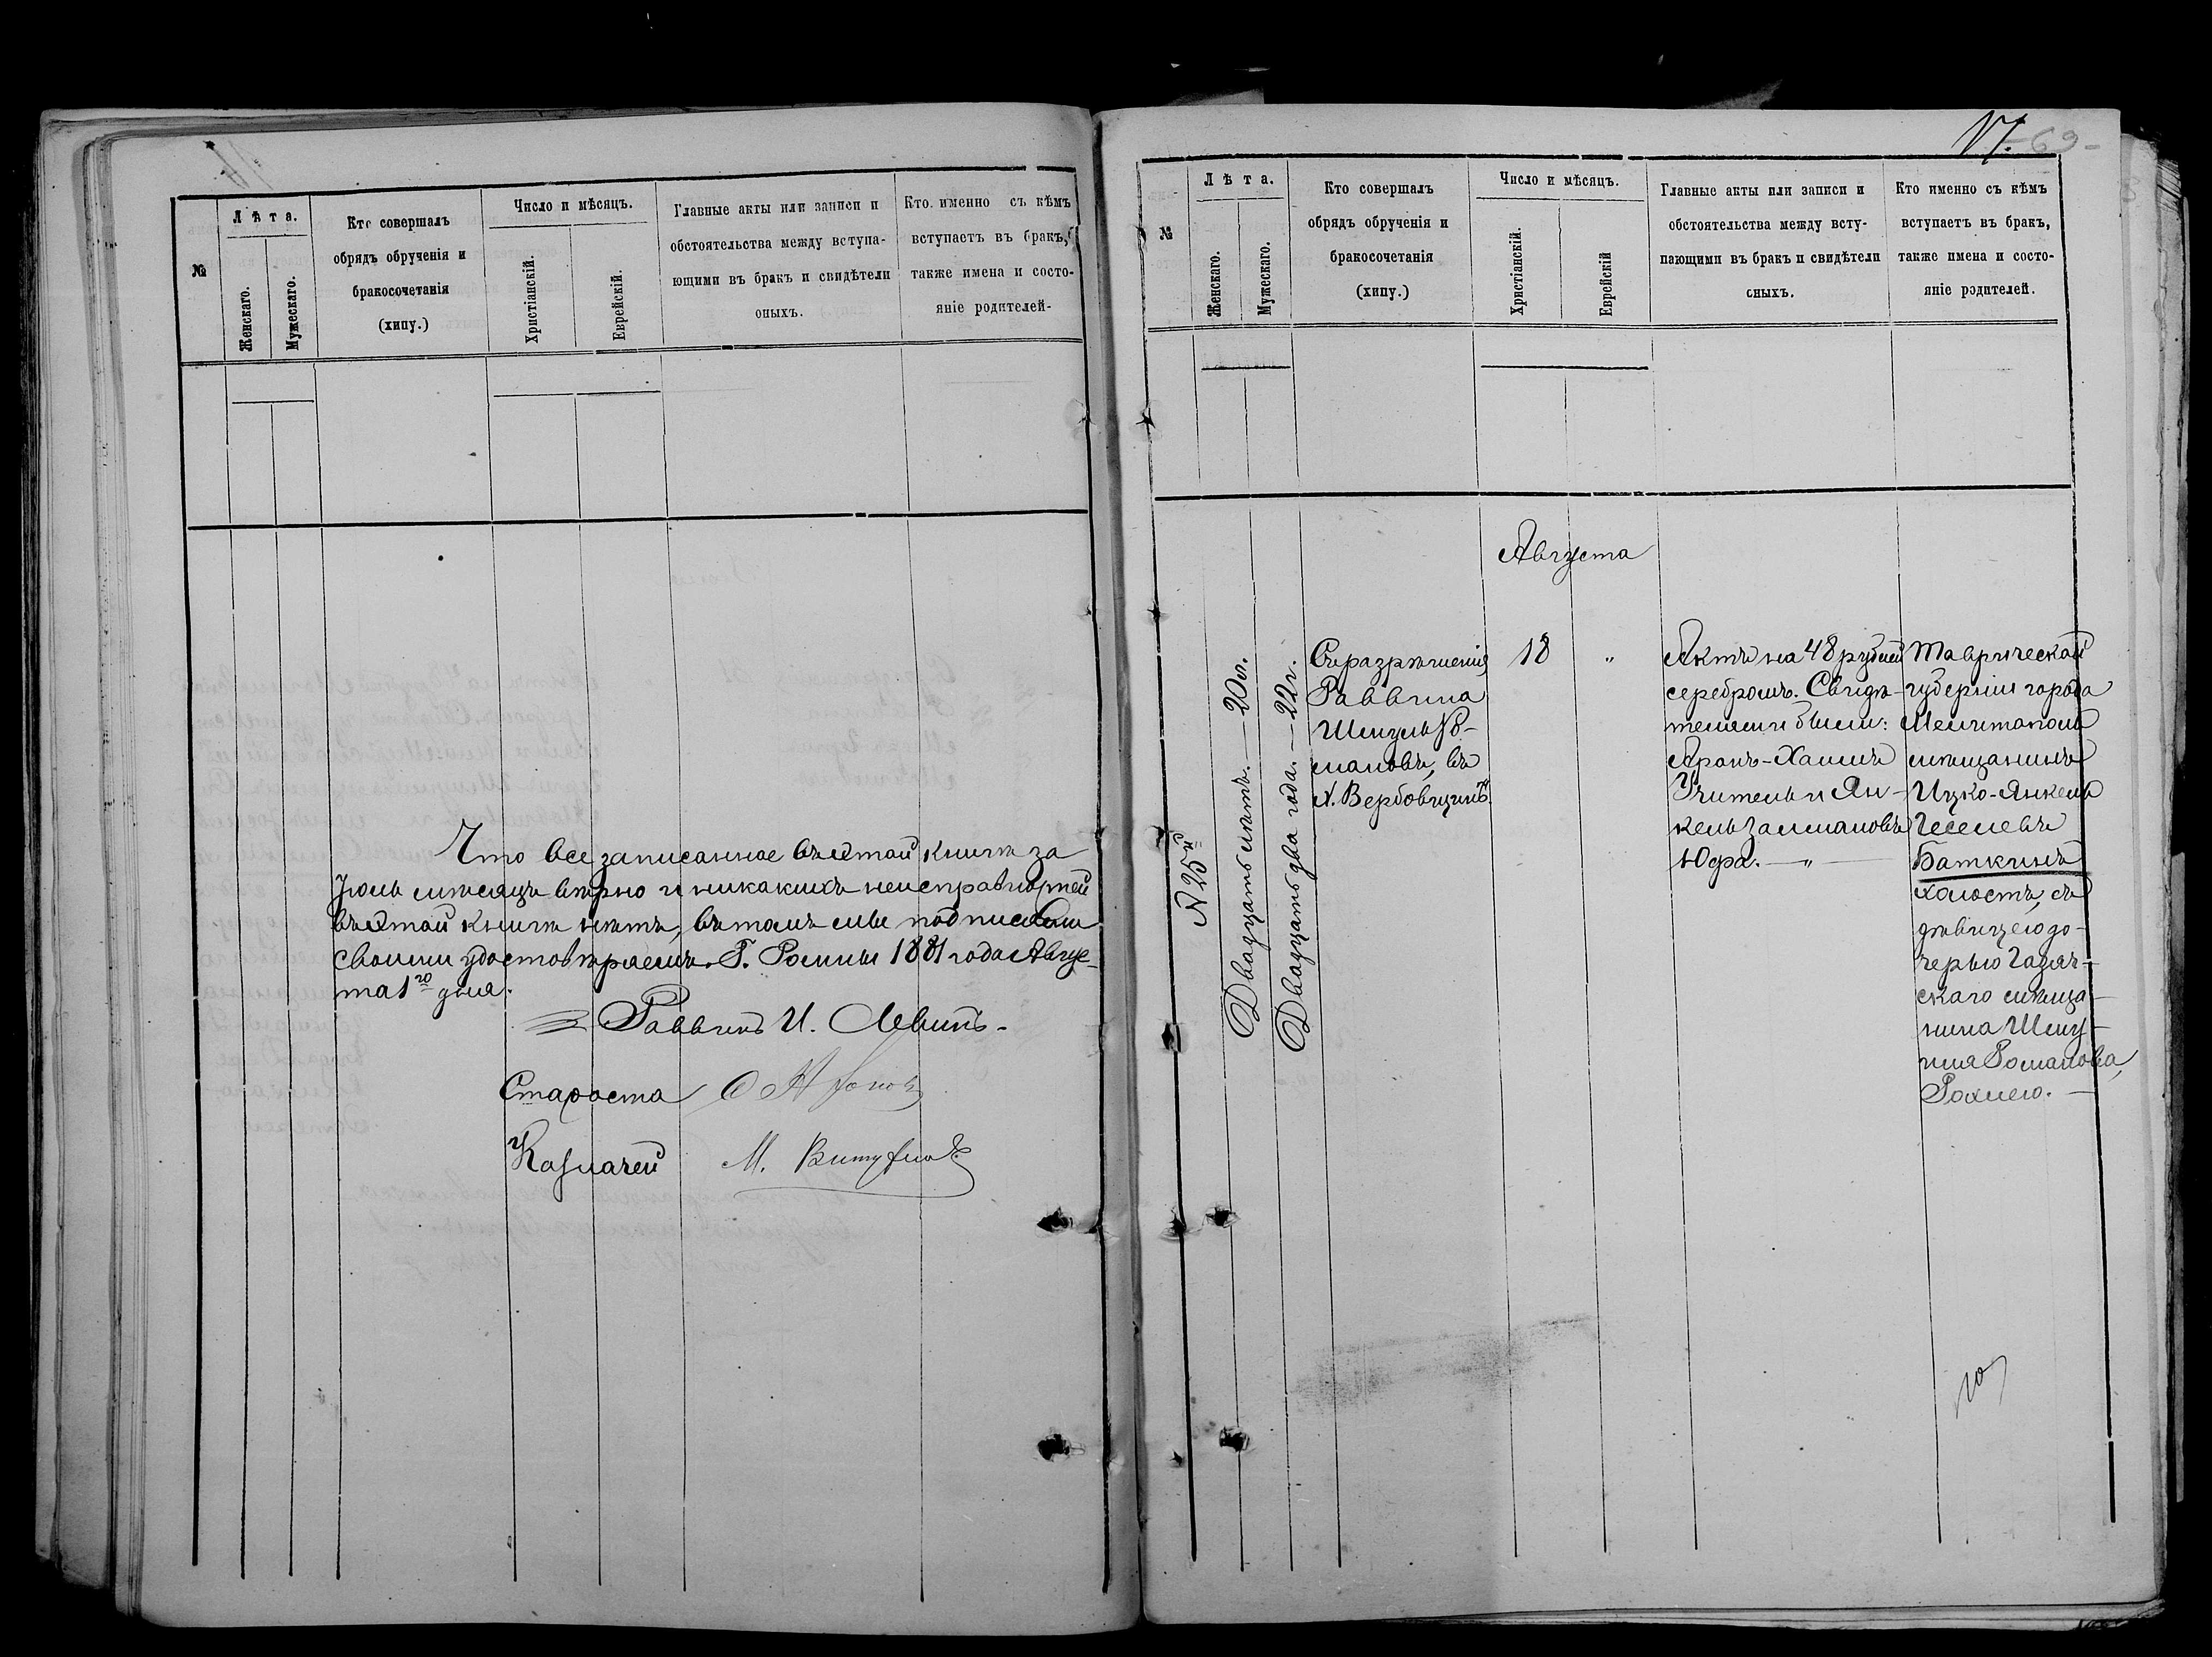 №
Лѣта.
Женскаго.
Мужескаго.
Кто совершалъ
обрядъ обрученія и
бракосочетанія
(хипу.)
Число и мѣсяцъ.
Христіанскій.
Еврейскій.
Главные акты или записи и
обстоятельства между вступа-
ющими въ бракъ и свидѣтели
оныхъ.
Кто именно съ кѣмъ
вступаетъ въ бракъ,
также имена и состо-
яніе родителей.
Что все записанное въ этой книгѣ за
Іюль мѣсяцъ вѣрно и никакихъ неисправностей
въ этой книгѣ нѣтъ, въ томъ мы подписами
своими удостовѣряемъ. Г. Ромны 1881 года Авгус-
та 1го дня.
Раввинъ И. Левинъ
Староста
Казначей М.
17.
69
№
Лѣта.
Женскаго.
Мужескаго.
Кто совершалъ
обрядъ обрученія и
бракосочетанія
(хипу.)
Число и мѣсяцъ.
Христіанскій.
Еврейскій
Главные акты или записи и
обстоятельства между всту-
пающими въ бракъ и свидѣтели
оныхъ.
Кто именно съ кѣмъ
вступаетъ въ бракъ,
также имена и состо-
яніе родителей.
Августа
№ 25й
Двадцать лѣтъ. — 20 л.
Двадцать два года. — 22 г.
Съ разрѣшенія
Раввина
Шмуль Ро-
мановъ, въ
х. Вербовщинѣ.
18
"
Актъ на 48 рублей
серебромъ. Свидѣ-
телями были:
Аронъ-Хаимъ
Учитель и Ян-
кель Залмановъ
Юфа. — " —
Таврической
губерніи города
Мелитополя
мѣщанинъ
Ицко-Янкель
Геселевъ
Баткинъ
холостъ, съ
дѣвицею до-
черью Гадяч-
скаго мѣща-
нина Шму-
иля Романова,
Рохлею. —